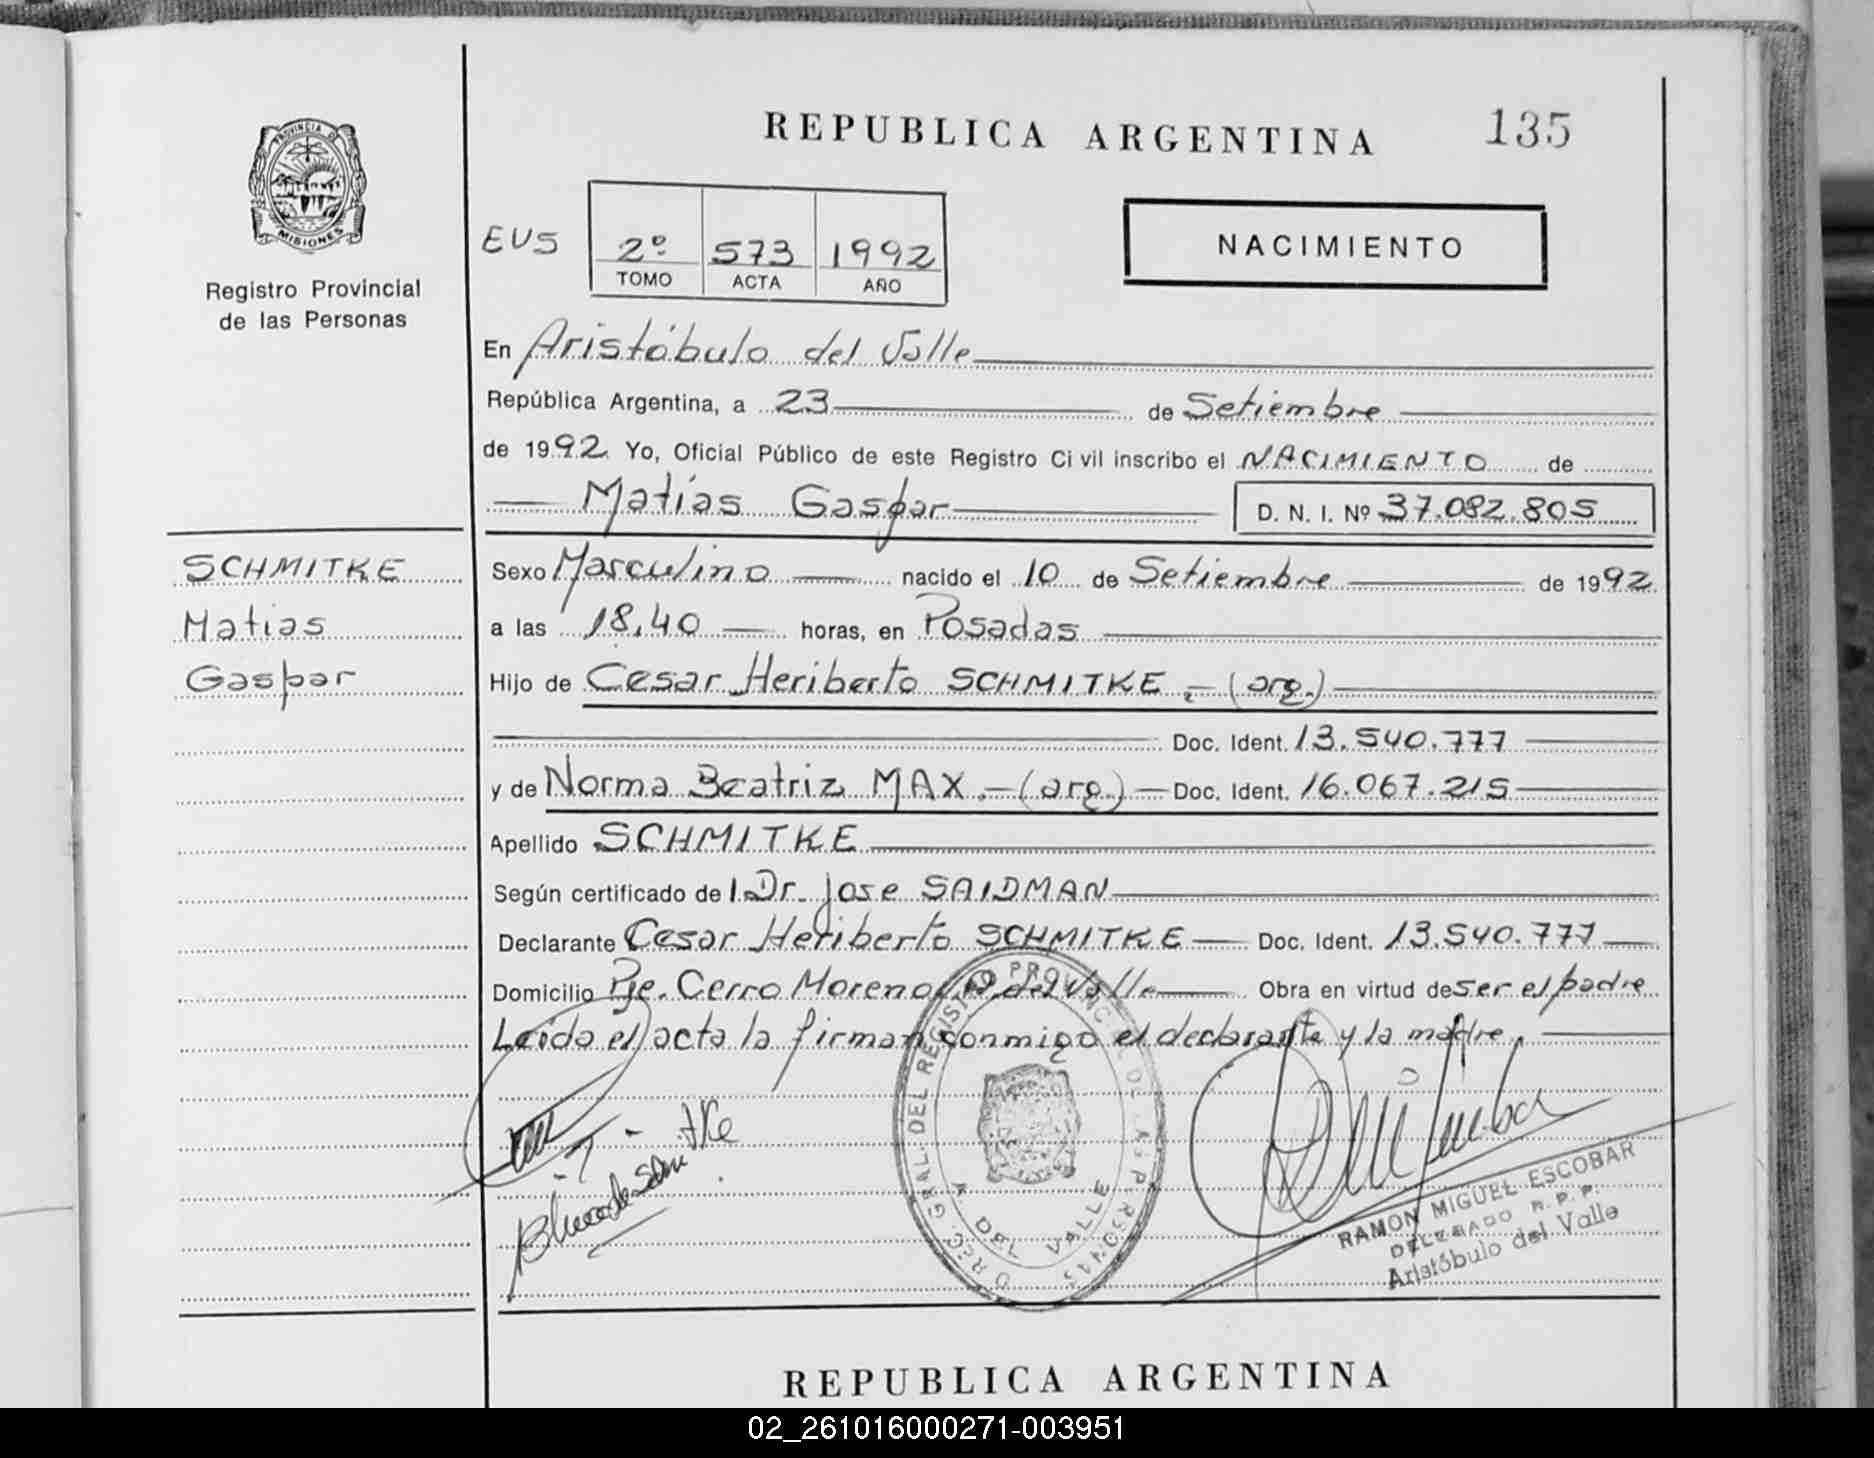 REPUBLICA ARGENTINA 135
PROVINCIA D
MISIONES
Registro Provincial
de las Personas
EUS
2º 573 1992
TOMO ACTA AÑO
NACIMIENTO
En Aristóbulo del Valle
República Argentina, a 23 de Setiembre
de 1992 Yo, Oficial Público de este Registro Civil inscribo el NACIMIENTO de
Matías Gaspar D. N. I. Nº 37.082.805
SCHMITKE
Matias
Gaspar
Sexo Masculino nacido el 10 de Setiembre de 1992
a las 18,40 horas, en Posadas
Hijo de Cesar Heriberto SCHMITKE.- (arg.)
Doc. Ident. 13.540.777
y de Norma Beatriz MAX.- (arg.) Doc. Ident. 16.067.215
Apellido SCHMITKE
Según certificado de l Dr. Jose SAIDMAN
Declarante Cesar Heriberto SCHMITKE Doc. Ident. 13.540.777
Domicilio Pje. Cerro Moreno A. del Valle Obra en virtud de ser el padre
Leída el acta la firman conmigo el declarante y la madre.
A. DEL VALLE
RAMON MIGUEL ESCOBAR
DELEGADO R.P.P.
Aristóbulo del Valle
REPUBLICA ARGENTINA
02_261016000271-003951